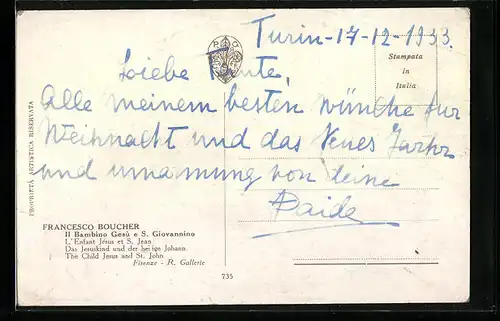 Turin-17-12-1933.
Liebe Tante,
Alle meinem besten wünche für
Weihnacht und und das Neues Jarhr
und umarmung von deine
Paide
Stampata
in
Italia
PROPRIETÀ ARTISTICA RISERVATA
FRANCESCO BOUCHER
Il Bambino Gesù e S. Giovannino
L'Enfant Jésus et S. Jean
Das Jesuskind und der heilige Johann.
The Child Jesus and St. John
Firenze - R. Gallerie
735